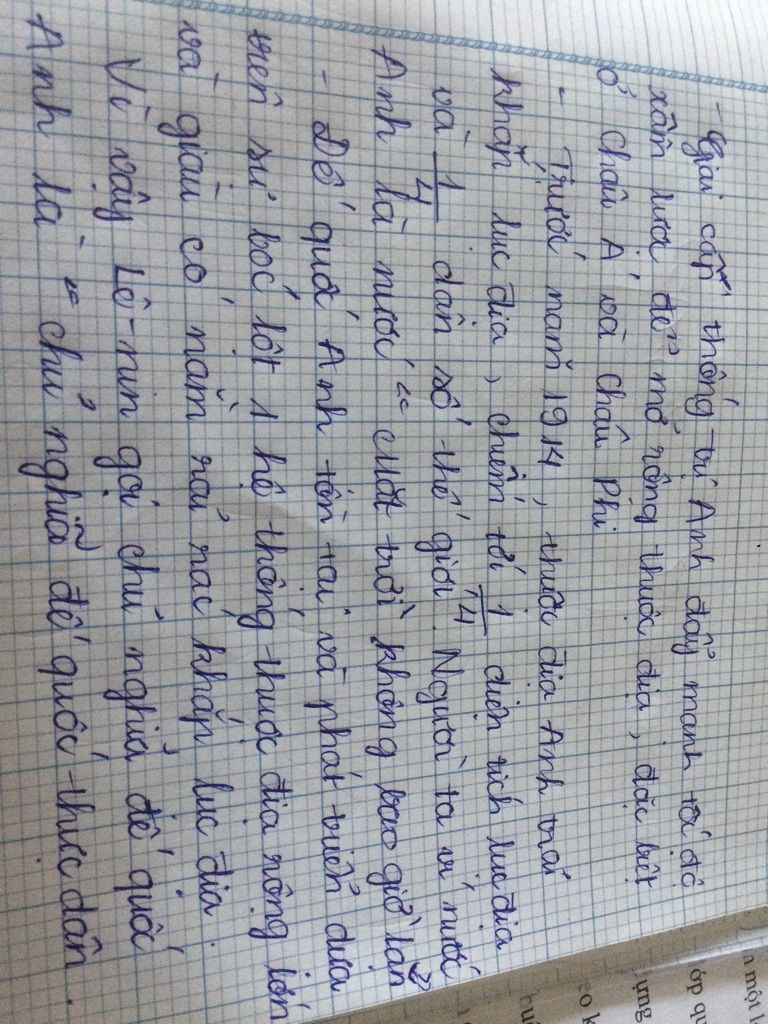 - Giai cấp thống trị Anh đẩy mạnh tốc độ
xâm lược để mở rộng thuộc địa, đặc biệt
ở châu Á và châu Phi
- Trước năm 1914, thuộc địa Anh trải
khắp lục địa, chiếm tới 1/4 diện tích lục địa
và 1/4 dân số thế giới. Người ta ví nước
Anh là nước "mặt trời không bao giờ lặn"
- Đế quốc Anh tồn tại và phát triển dựa
trên sự bóc lột 1 hệ thống thuộc địa rộng lớn
và giàu có nằm rải rác khắp lục địa.
Vì vậy Lê-nin gọi chủ nghĩa đế quốc
Anh là "chủ nghĩa đế quốc thực dân.
n một l
ớp qu
ựng
eo k